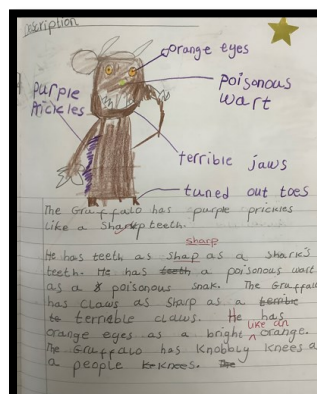 Description
orange eyes
poisonous
wart
purple
Prickles
terrible jaws
tuned out toes
The Gruffalo has purple prickles
like a sharp teeth.
sharp
He has teeth as shap as a shark's
teeth. He has teeth a poisonous wart
as a poisonous snak. The Gruffalo
has claws as sharp as a terrible
to terrible claws. He has
like an
orange eyes as a bright orange.
The Gruffalo has knobbly knees as
a people knees. The